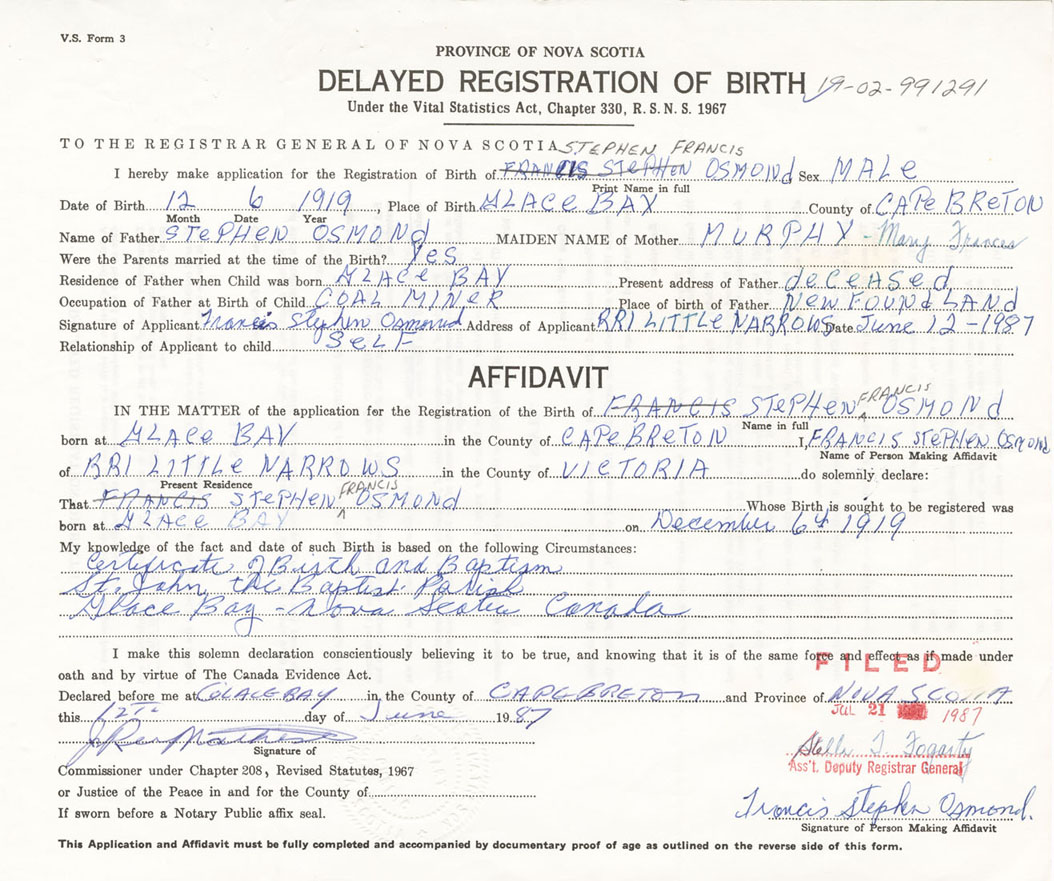 V.S. Form 3
PROVINCE OF NOVA SCOTIA
DELAYED REGISTRATION OF BIRTH 19-02-991291
Under the Vital Statistics Act, Chapter 330, R.S.N.S. 1967
TO THE REGISTRAR GENERAL OF NOVA SCOTIA STEPHEN FRANCIS
I hereby make application for the Registration of Birth of FRANCIS STePHeN OSMONd Sex MALe
Print Name in full
Date of Birth 12 6 1919, Place of Birth GLACe BAY County of CAPe BReTON
Month Date Year
Name of Father STePHeN OSMONd MAIDEN NAME of Mother MURPHY - Mary Frances
Were the Parents married at the time of the Birth? Yes
Residence of Father when Child was born GLACe BAY Present address of Father deCeASed
Occupation of Father at Birth of Child COAL MINeR Place of birth of Father NeWFOUNdLANd
Signature of Applicant Francis Stephen Osmond Address of Applicant RR1 LITTLe NARROWS Date June 12-1987
Relationship of Applicant to child SeLF
AFFIDAVIT
FRANCIS
IN THE MATTER of the application for the Registration of the Birth of FRANCIS STePHeN OSMONd
Name in full
born at GLACe BAY in the County of CAPe BReTON I, FRANCIS STePHeN OSMONd
Name of Person Making Affidavit
of RR1 LITTLe NARROWS in the County of VICTORIA do solemnly declare:
Present Residence
FRANCIS
That FRANCIS STePHeN OSMONd Whose Birth is sought to be registered was
born at GLACe BAY on December 6th 1919
My knowledge of the fact and date of such Birth is based on the following Circumstances:
Certificate of Birth and Baptism
St. John the Baptist Parish
Glace Bay - Nova Scotia Canada
I make this solemn declaration conscientiously believing it to be true, and knowing that it is of the same force and effect as if made under
FILED
oath and by virtue of The Canada Evidence Act.
Declared before me at GLACE BAY in the County of CAPE BRETON and Province of NOVA SCOTIA
this 12TH day of June 1987
JUL 21 1987
Signature of
Stella T. Fogarty
Ass't. Deputy Registrar General
Commissioner under Chapter 208, Revised Statutes, 1967
or Justice of the Peace in and for the County of
If sworn before a Notary Public affix seal.
Francis Stephen Osmond.
Signature of Person Making Affidavit
This Application and Affidavit must be fully completed and accompanied by documentary proof of age as outlined on the reverse side of this form.